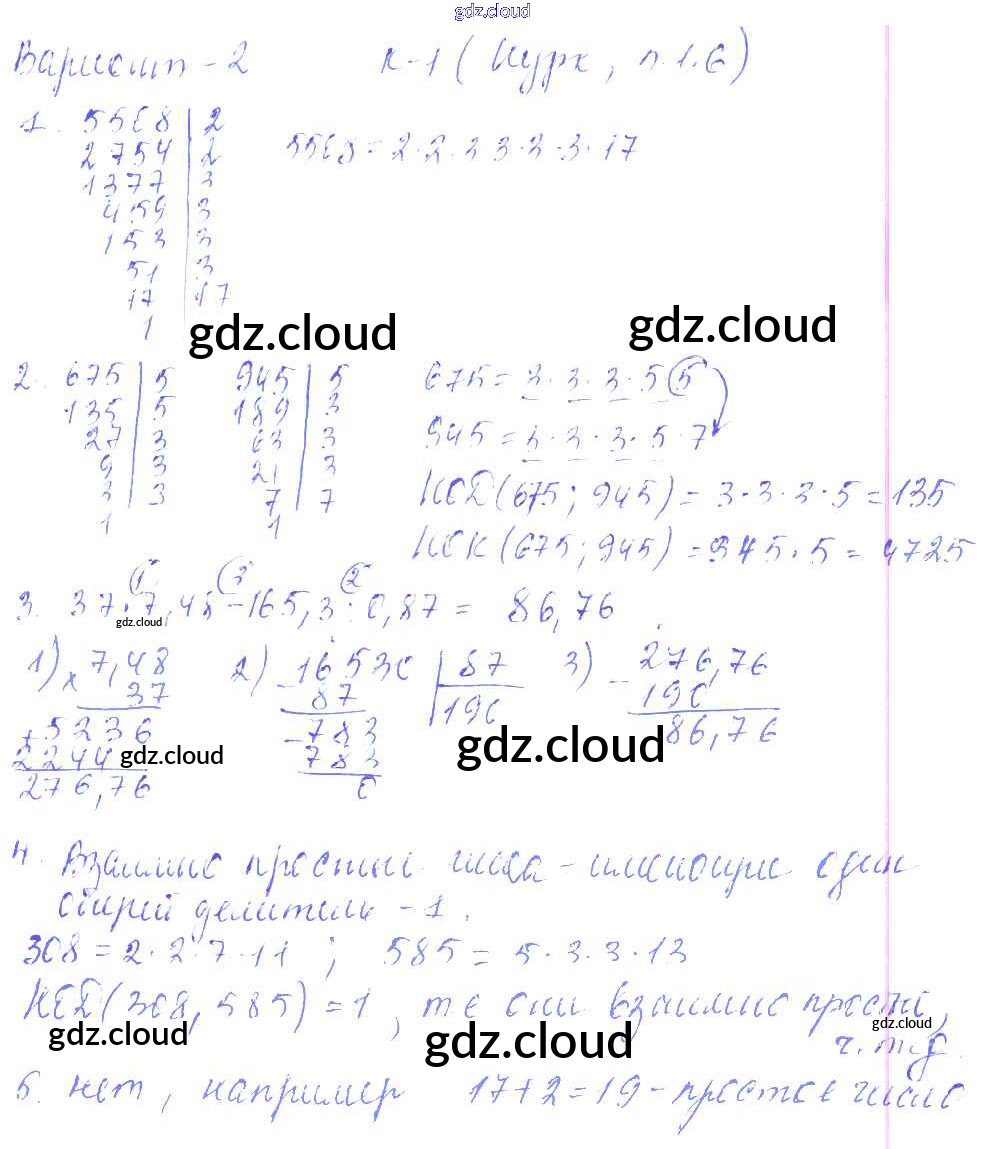 gdz.cloud
Вариант - 2 К-1 (Нурк, п.1.6)
1. 5508 | 2 5508 = 2·2·3·3·3·3·17
2754 | 2
1377 | 3
459 | 3
153 | 3
51 | 3
17 | 17
1
gdz.cloud gdz.cloud
2. 675 | 5 945 | 5 675 = 3·3·3·5·5
135 | 5 189 | 3
27 | 3 63 | 3 945 = 3·3·3·5·7
9 | 3 21 | 3
3 | 3 7 | 7 НОД(675; 945) = 3·3·3·5 = 135
1 1
НОК (675; 945) = 945·5 = 4725
1 3 2
3. 37·7,48 - 165,3 : 0,87 = 86,76
gdz.cloud
1) × 7,48 2) - 16530 | 87 3) - 276,76
37 87 190 190
+ 5236 - 783 86,76
2244 783
276,76 0
gdz.cloud gdz.cloud
4. Взаимно простые числа - имеющие один
общий делитель - 1.
308 = 2·2·7·11 ; 585 = 5·3·3·13
НОД(308, 585) = 1, т.е они взаимно просты,
ч.т.д.
gdz.cloud gdz.cloud gdz.cloud
5. нет, например 17+2=19 - простое число